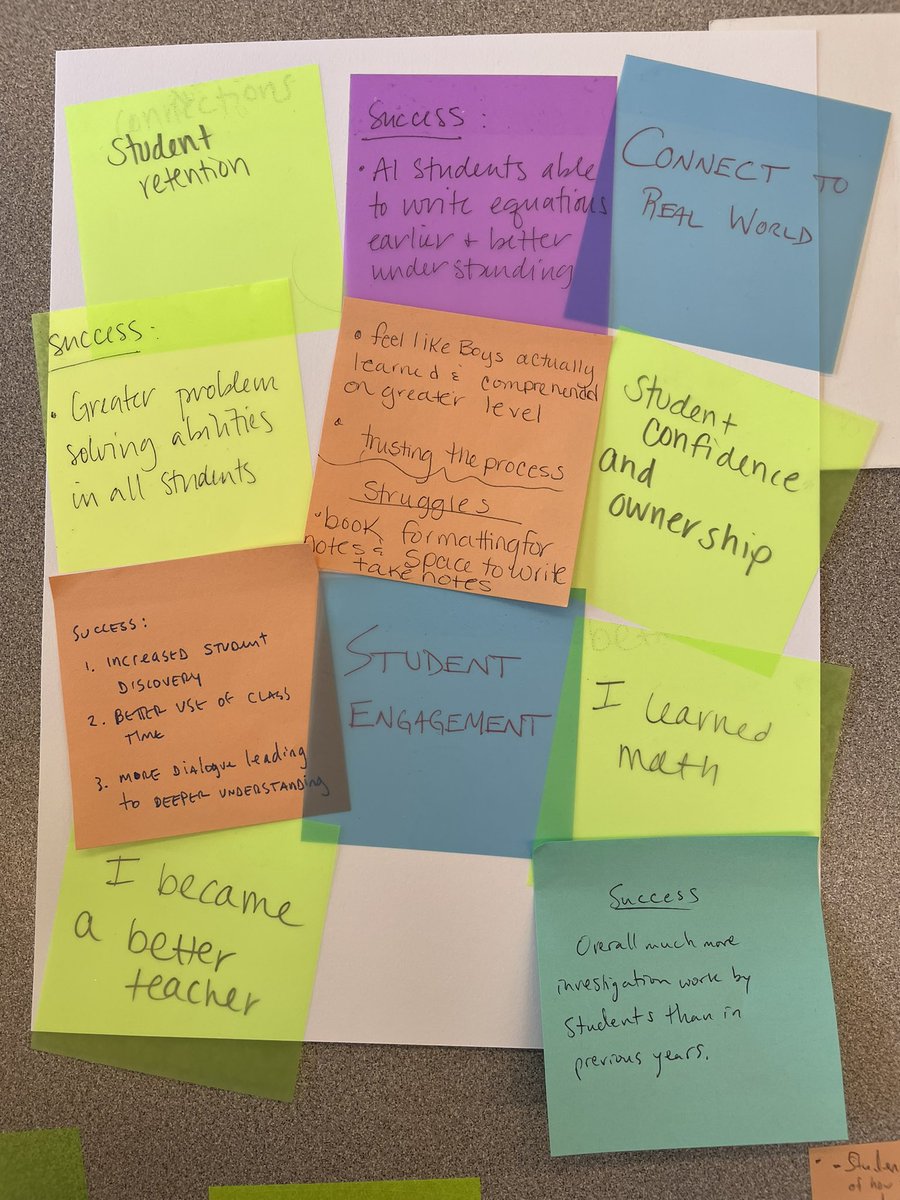 Connections
Student
retention
Success:
• AI students able
to write equations
earlier + better
understanding
CONNECT TO
REAL WORLD
Success:
• Greater problem
solving abilities
in all students
• feel like Boys actually
learned & comprehended
on greater level
• trusting the process
Struggles
• book formatting for
notes & space to write
take notes
Student
confidence
and
ownership
SUCCESS:
1. INCREASED STUDENT
DISCOVERY
2. BETTER USE OF CLASS
TIME
3. MORE DIALOGUE leading
to DEEPER UNDERSTANDING
STUDENT
ENGAGEMENT
I learned
math
I became
a better
teacher
Success
Overall much more
investigation work by
students than in
previous years.
of how